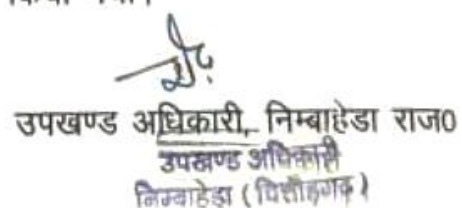 उपखण्ड अधिकारी, निम्बाहेडा राज०
उपखण्ड अधिकारी
निम्बाहेडा (चित्तौड़गढ़)